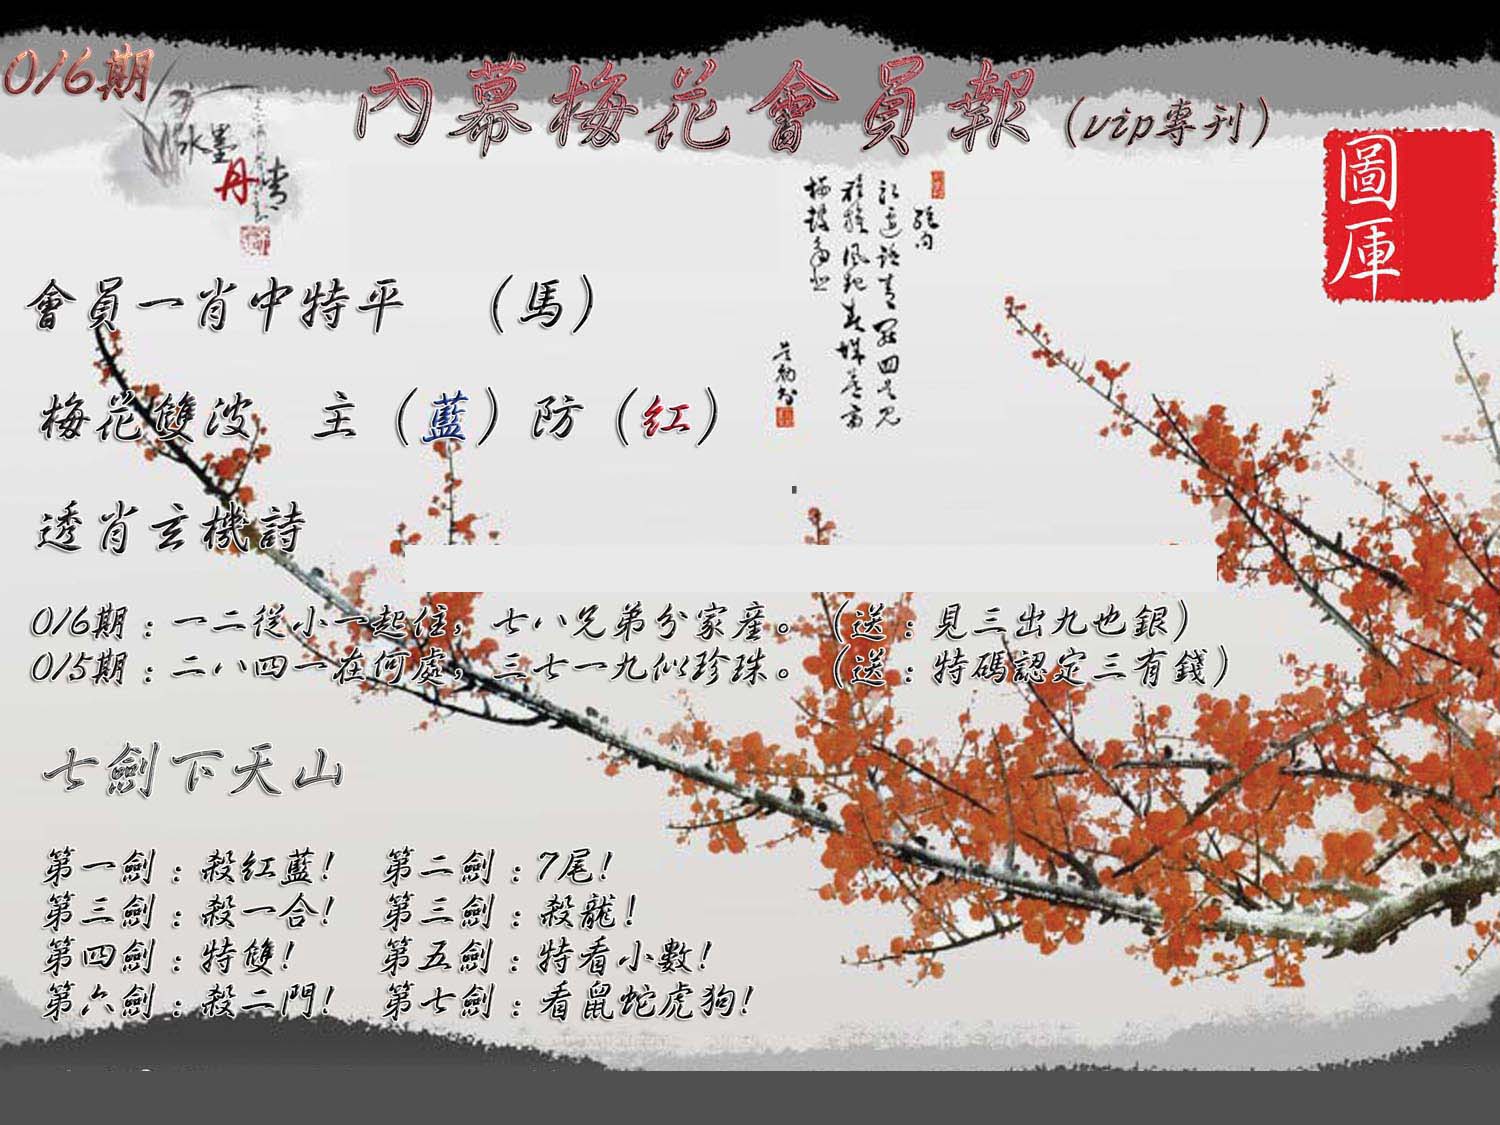 016期
內幕梅花會員報（vip專刊）
水墨
丹青
圖庫
會員一肖中特平 （馬）
梅花雙波 主（藍）防（紅）
透肖玄機詩
016期：一二從小一起住，七八兄弟分家產。（送：見三出九也銀）
015期：二八四一在何處，三七一九似珍珠。（送：特碼認定三有錢）
七劍下天山
第一劍：殺紅藍！ 第二劍：7尾！
第三劍：殺一合！ 第三劍：殺龍！
第四劍：特雙！ 第五劍：特看小數！
第六劍：殺二門！ 第七劍：看鼠蛇虎狗！